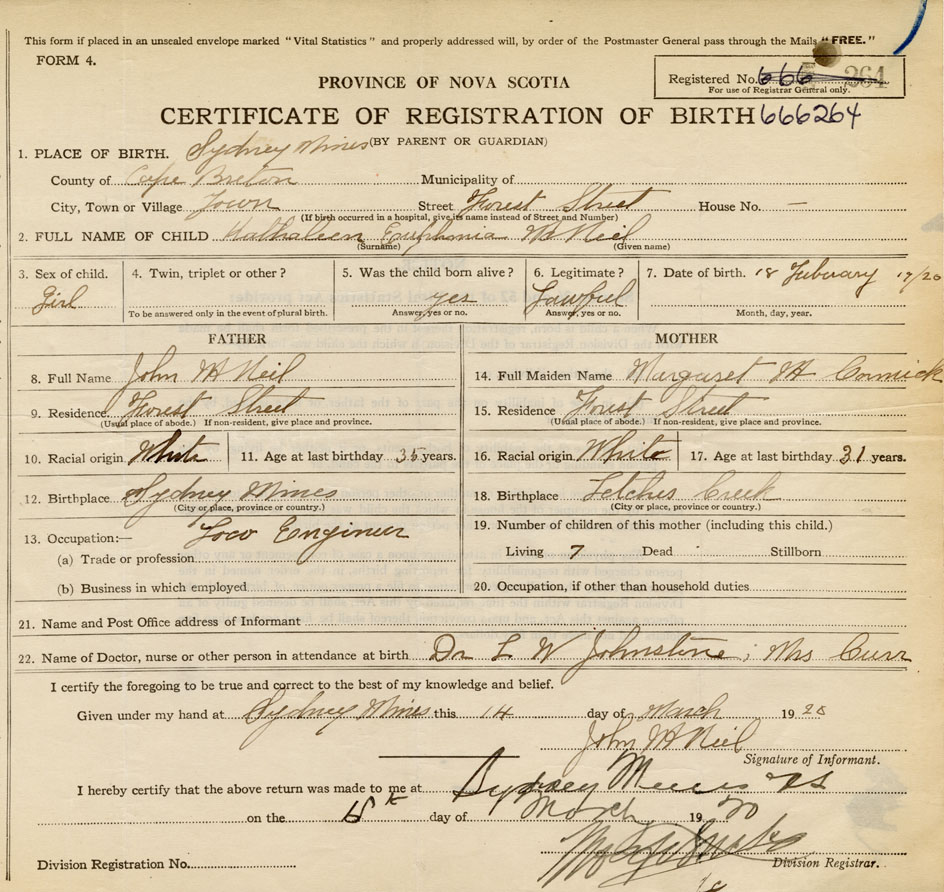 This form if placed in an unsealed envelope marked "Vital Statistics" and properly addressed will, by order of the Postmaster General pass through the Mails "FREE."
FORM 4.
PROVINCE OF NOVA SCOTIA
Registered No. 666 264
For use of Registrar General only.
CERTIFICATE OF REGISTRATION OF BIRTH 666264
(BY PARENT OR GUARDIAN)
1. PLACE OF BIRTH. Sydney Mines
County of Cape Breton Municipality of
City, Town or Village Town Street Forest Street House No. —
(If birth occurred in a hospital, give its name instead of Street and Number)
2. FULL NAME OF CHILD Kathaleen Euphimia Mc Neil
(Surname) (Given name)
3. Sex of child. 4. Twin, triplet or other? 5. Was the child born alive? 6. Legitimate? 7. Date of birth. 18 Febuary 19/20
Girl yes Lawful
To be answered only in the event of plural birth. Answer, yes or no. Answer, yes or no. Month, day, year.
FATHER MOTHER
8. Full Name John Mc Neil 14. Full Maiden Name Margaret Mc Cormick
9. Residence Forest Street 15. Residence Forest Street
(Usual place of abode.) If non-resident, give place and province. (Usual place of abode.) If non-resident, give place and province.
10. Racial origin White 11. Age at last birthday 35 years. 16. Racial origin White 17. Age at last birthday 31 years.
12. Birthplace Sydney Mines 18. Birthplace Letches Creek
(City or place, province or country.) (City or place, province or country.)
13. Occupation:— Loco Enginer 19. Number of children of this mother (including this child.)
(a) Trade or profession Living 7 Dead - Stillborn
(b) Business in which employed 20. Occupation, if other than household duties
21. Name and Post Office address of Informant
22. Name of Doctor, nurse or other person in attendance at birth Dr L W Johnstone; Mrs Curr
I certify the foregoing to be true and correct to the best of my knowledge and belief.
Given under my hand at Sydney Mines this 14 day of March 1920
John Mc Neil
Signature of Informant.
I hereby certify that the above return was made to me at Sydney Mines NS
on the day of March 1920
Division Registration No. Division Registrar.